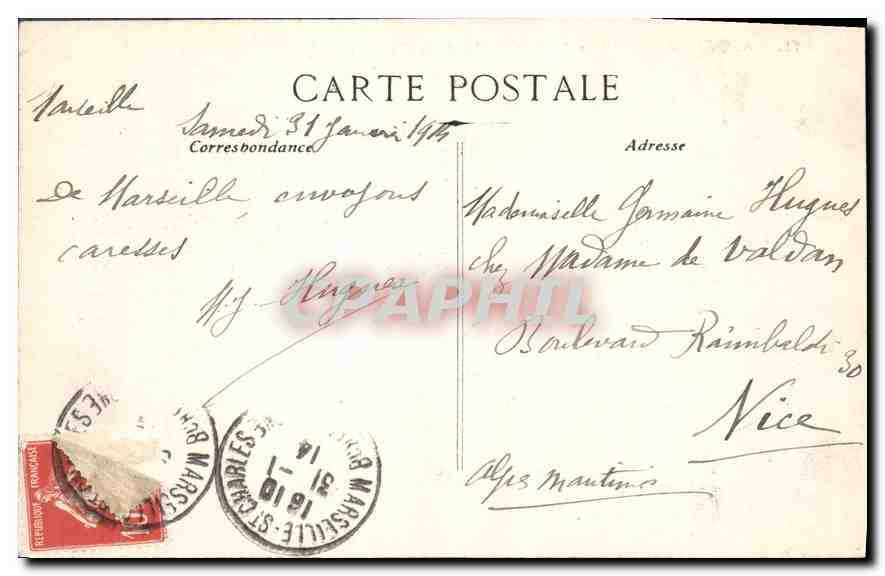 CARTE POSTALE
Marseille
Samedi 31 Janvier 1914
Correspondance
De Marseille, envoyons
caresses
M.J. Hugues
Adresse
Mademoiselle Germaine Hugues
chez Madame de Valdan
Boulevard Raimbaldi 30
Nice
Alpes maritimes
CPAPHIL
MARSEILLE-ST CHARLES
16 10
31 - 1
14
MARSEILLE
REPUBLIQUE FRANÇAISE